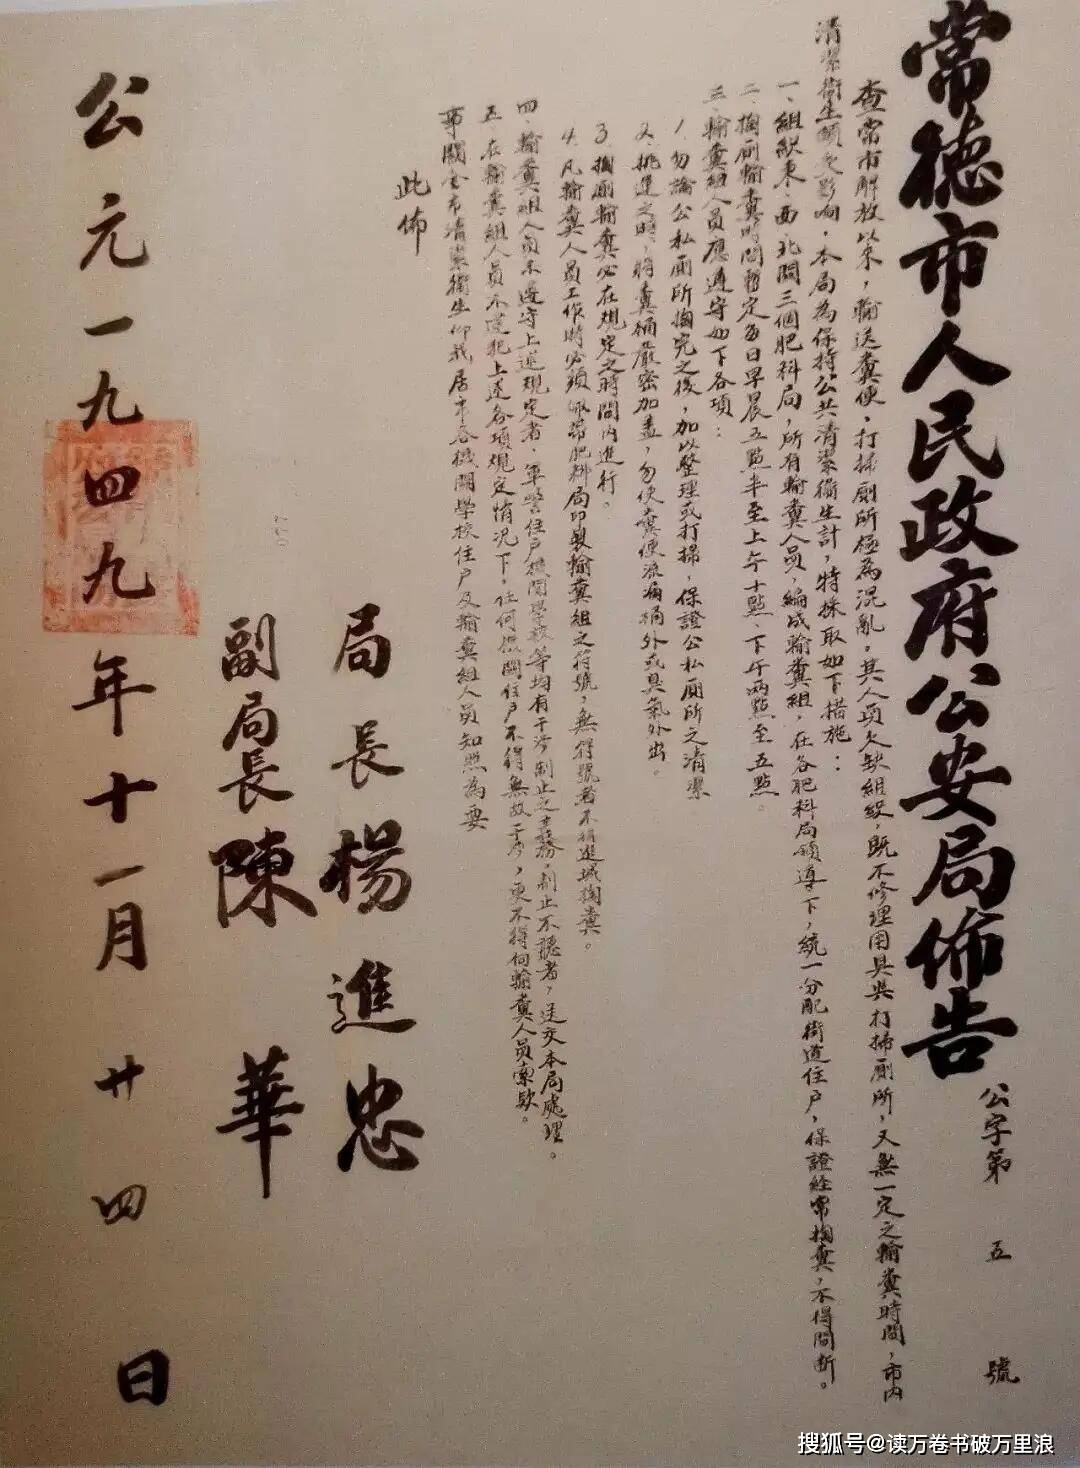 常德市人民政府公安局佈告
公字第五號
查常市解放以來，輸送糞便，打掃廁所極為混亂。其人員欠缺組織，既不修理用具與打掃廁所，又無一定之輸糞時間，市内
清潔衛生頗受影响，本局為保持公共清潔衛生計，特採取如下措施：
一、組織東、西、北關三個肥料局，所有輸糞人員，編成輸糞組，在各肥料局領導下，統一分配街道住户，保證經常掏糞，不得間断。
二、掏廁輸糞時間暫定每日早晨五點半至上午十點、下午兩點至五點。
三、輸糞組人員應遵守如下各項：
1、勿論公私廁所掏完之後，加以整理或打掃，保證公私廁所之清潔
2、挑運之時，將糞桶嚴密加盖，勿使糞便流漏桶外或臭氣外出。
3、掏廁輸糞必在規定之時間内進行。
4、凡輸糞人員工作時必須佩帶肥料局印製輸糞組之符號，無符號者不得進城掏糞。
四、輸糞組人員不遵守上述規定者，軍警住户機関學校等均有干涉制止之義務，制止不聽者，送交本局處理。
五、在輸糞組人員不違犯上述各項規定情况下，任何機關住户不得無故干涉，更不得向輸糞人員索款。
事關全市清潔衛生仰我居民各機關學校住户及輸糞組人員知照為要
此佈
局長楊進忠
副局長陳華
公元一九四九年十一月廿四日
搜狐号@读万卷书破万里浪